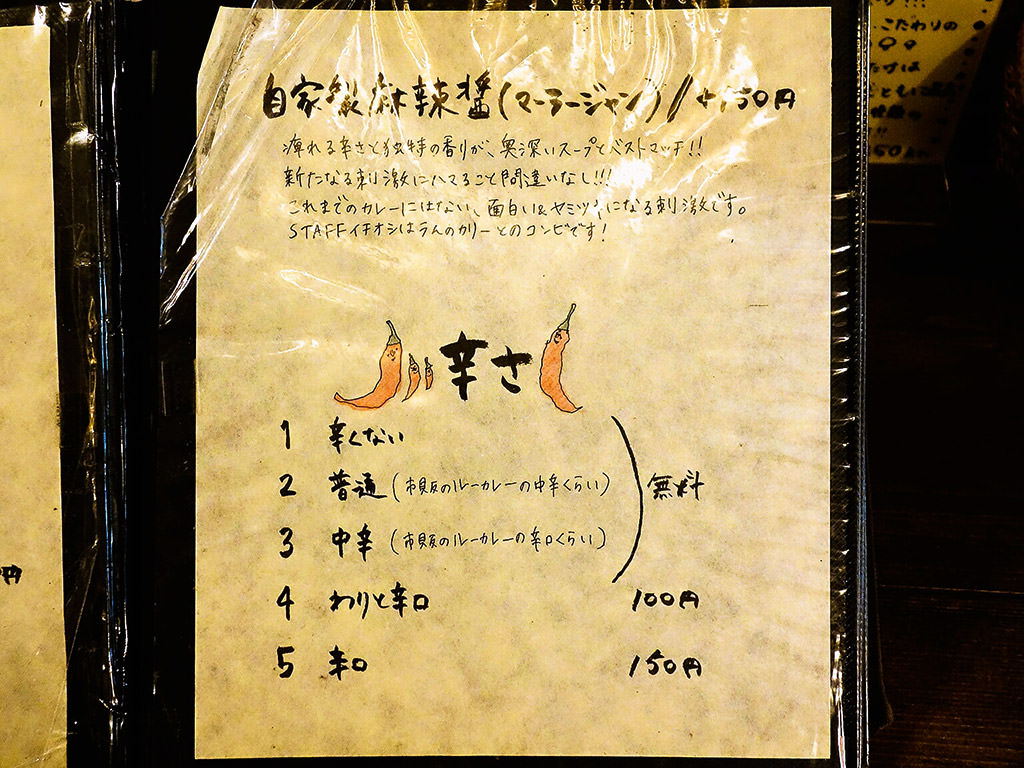 自家製麻辣醤(マーラージャン)/+150円
痺れる辛さと独特の香りが、奥深いスープとベストマッチ!!
新たなる刺激にハマること間違いなし!!!
これまでのカレーにはない、面白い&ヤミツキになる刺激です。
STAFFイチオシはうんのカリーとのコンビです!
辛さ
1 辛くない
2 普通(市販のルーカレーの中辛くらい)
無料
3 中辛(市販のルーカレーの辛口くらい)
4 わりと辛口 100円
5 辛口 150円
円
こだわりの